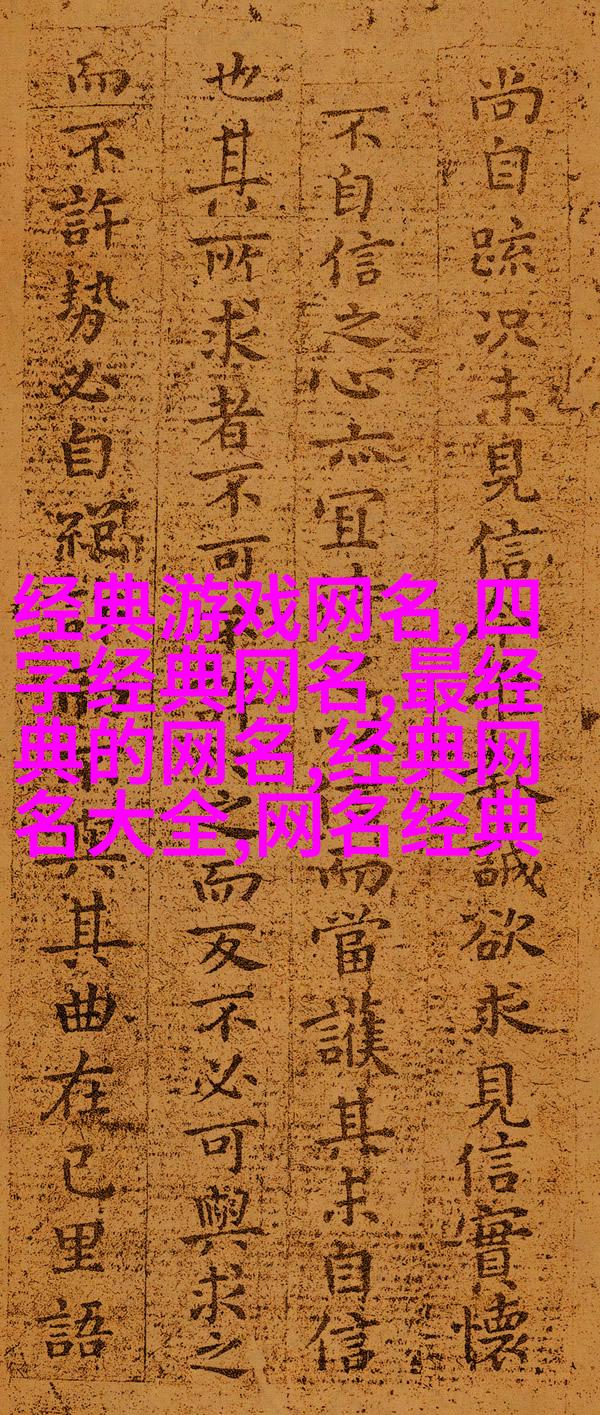 尚自疏況未見信誠欲求見信實懷
不自信之心亦宜而當護其未自信
也其所求者不可之而反不必可與求之
而不許勢必自絕與其曲在己里語
经典游戏网名,四
字经典网名,最经
典的网名,经典网
名大全,网名经典